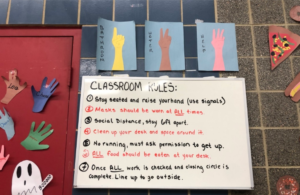 BATHROOM
WATER
HELP
CLASSROOM RULES:
① Stay seated and raise your hand (use signals)
② Masks should be worn at ALL times.
③ Social Distance, stay 6 feet apart.
④ Clean up your desk and space around it.
⑤ No running, must ask permission to get up.
⑥ ALL food should be eaten at your desk.
⑦ Once ALL work is checked and closing circle is
complete. Line up to go outside.